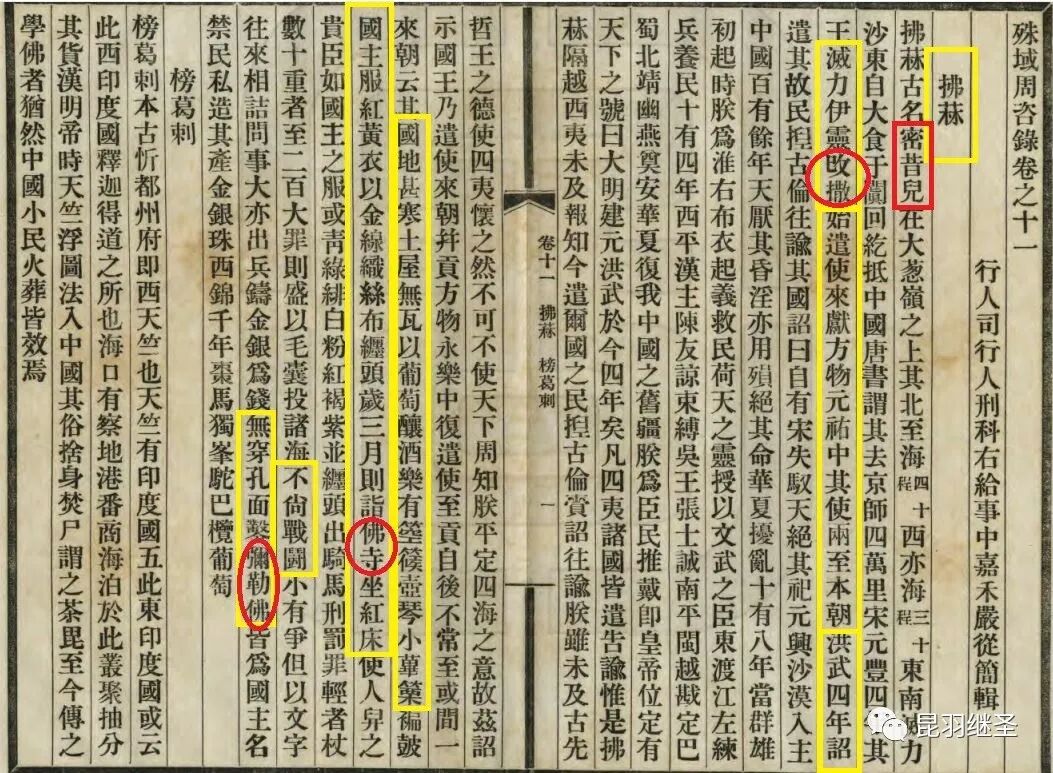 殊域周咨錄卷之十一
行人司行人刑科右給事中嘉禾嚴從簡輯
拂菻
拂菻古名密昔兒在大葱嶺之上其北至海四十程西亦海三十程東南滅力
沙東自大食于闐回紇抵中國唐書謂其去京師四萬里宋元豐四年其
王滅力伊靈改撒始遣使來獻方物元祐中其使兩至本朝洪武四年詔
遣其故民揑古倫往諭其國詔曰自有宋失馭天絕其祀元興沙漠入主
中國百有餘年天厭其昏淫亦用殞絕其命華夏擾亂十有八年當群雄
初起時朕爲淮右布衣起義救民荷天之靈授以文武之臣東渡江左練
兵養民十有四年西平漢主陳友諒東縛吳王張士誠南平閩越戡定巴
蜀北靖幽燕奠安華夏復我中國之舊疆朕爲臣民推戴卽皇帝位定有
天下之號曰大明建元洪武於今四年矣凡四夷諸國皆遣告諭惟是拂
菻隔越西夷未及報知今遣爾國之民揑古倫賫詔往諭朕雖未及古先
卷十一 拂菻 榜葛剌 一
哲王之德使四夷懷之然不可不使天下周知朕平定四海之意故茲詔
示國王乃遣使來朝幷貢方物永樂中復遣使至貢自後不常至或間一
來朝云其國地甚寒土屋無瓦以葡萄釀酒樂有箜篌壺琴小篳篥褊鼓
國主服紅黃衣以金線織絲布纏頭歲三月則詣佛寺坐紅床使人舁之
貴臣如國王之服或靑綠緋白粉紅褐紫並纏頭出騎馬刑罰罪輕者杖
數十重者至二百大罪則盛以毛囊投諸海不尙戰鬭小有爭但以文字
往來相詰問事大亦出兵鑄金銀爲錢無穿孔面鑿彌勒佛皆爲國主名
禁民私造其產金銀珠西錦千年棗馬獨峯駝巴欖葡萄
榜葛剌
榜葛剌本古忻都州府卽西天竺也天竺有印度國五此東印度國或云
此西印度國釋迦得道之所也海口有察地港番商海泊於此叢聚抽分
其貨漢明帝時天竺浮圖法入中國其俗捨身焚尸謂之茶毘至今傳之
學佛者猶然中國小民火葬皆效焉
昆羽继圣